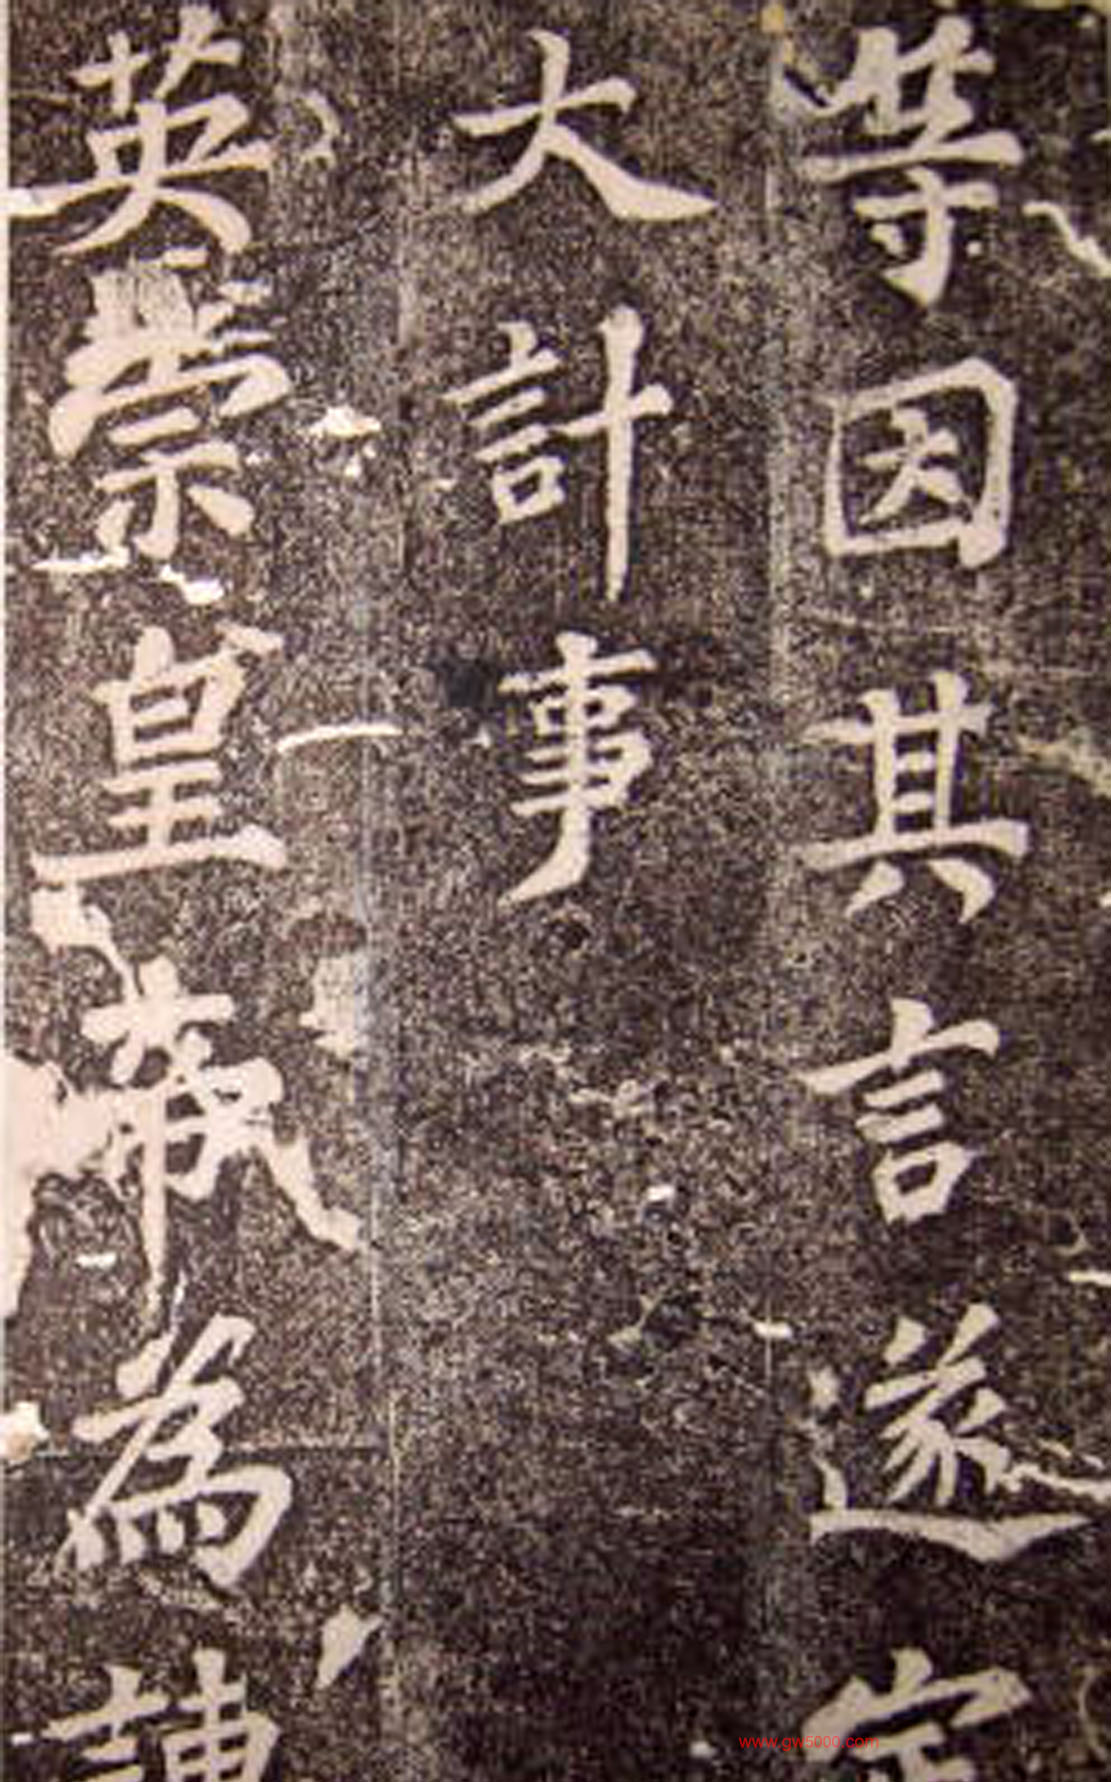 等因其言遂定
大計事
英崇皇執為諫
www.gw5000.com